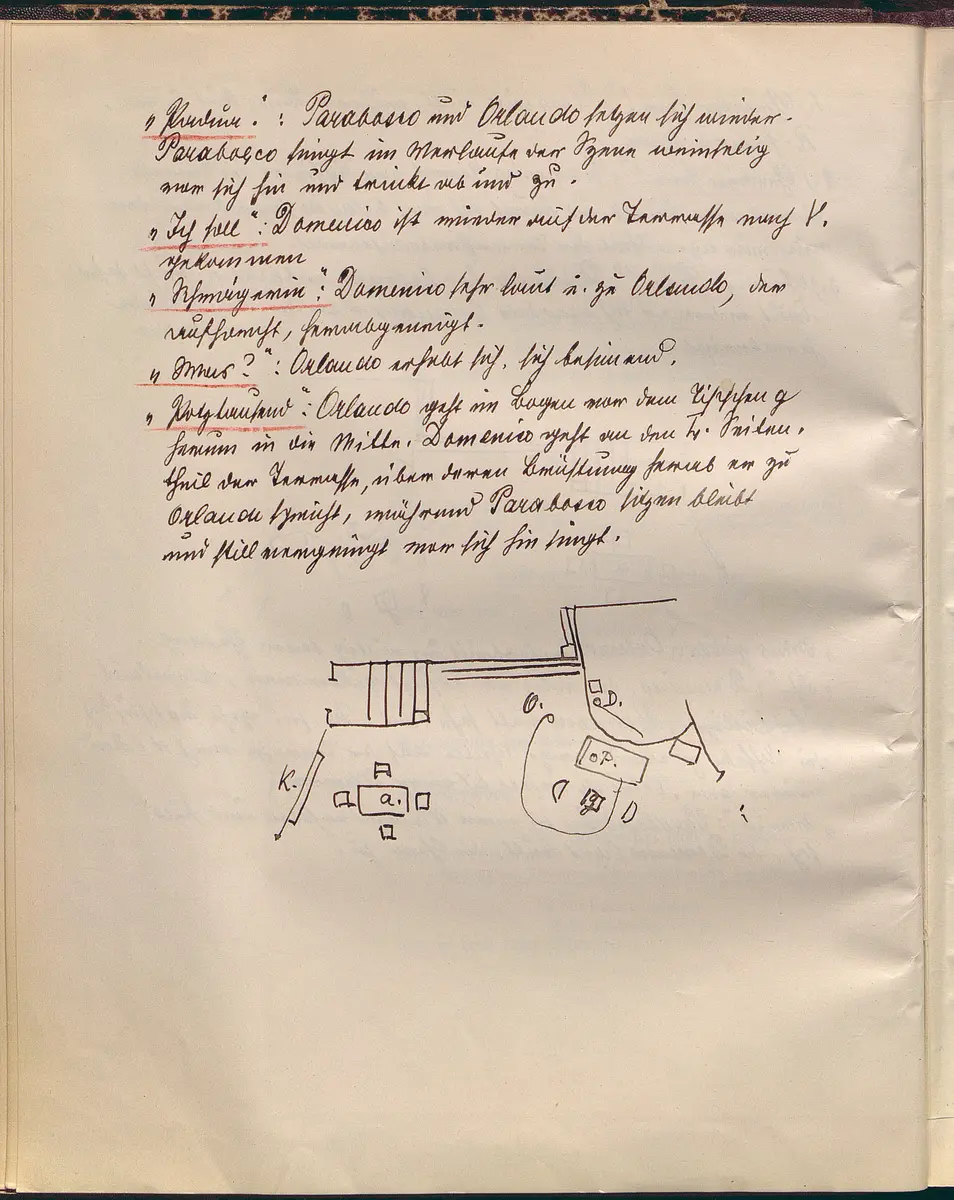 „Padua.": Parabosco und Orlando setzen sich wieder.
Parabosco singt im Verlaufe der Szene weinselig
vor sich hin und trinkt ab und zu.
„Ich soll": Domenico ist wieder auf der Terrasse nach V.
gekommen
„Schwägerin": Domenico sehr laut u. zu Orlando, der
aufhorcht, herabgeneigt.
„Was?": Orlando erhebt sich, sich besinnend.
„Potztausend": Orlando geht im Bogen vor dem Tischchen g
herum in die Mitte. Domenico geht an den Seiten-
theil der Terrasse, über deren Brüstung herab er zu
Orlando spricht, während Parabosco sitzen bleibt
und still vergnügt vor sich hin singt.
O.
D.
P.
K.
a.
g